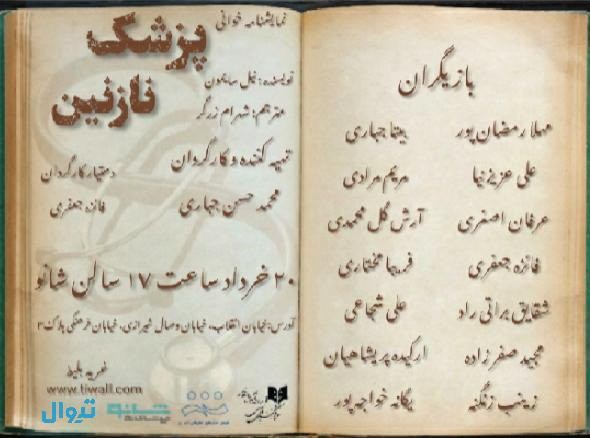 نمایشنامه خوانی
پزشک
نازنین
نویسنده: نیل سایمون
مترجم: شهرام زرگر
تهیه کننده و کارگردان
محمد حسن جباری
دستیار کارگردان
فائزه جعفری
۲۰ خرداد ساعت ۱۷ سالن شانو
آدرس: خیابان انقلاب، خیابان وصال شیرازی، خیابان فرهنگی پلاک ۳
خرید بلیط
www.tiwall.com
تیوال
شانو
بازیگران
مهلا رمضان پور
بیتا جباری
علی عزیزنیا
مریم مرادی
عرفان اصغری
آرش گل محمدی
فائزه جعفری
فریبا مختاری
شقایق براتی راد
علی شجاعی
مجید صفرزاده
ارکیده پریشاهیان
زینب زنگنه
یگانه خواجه پور